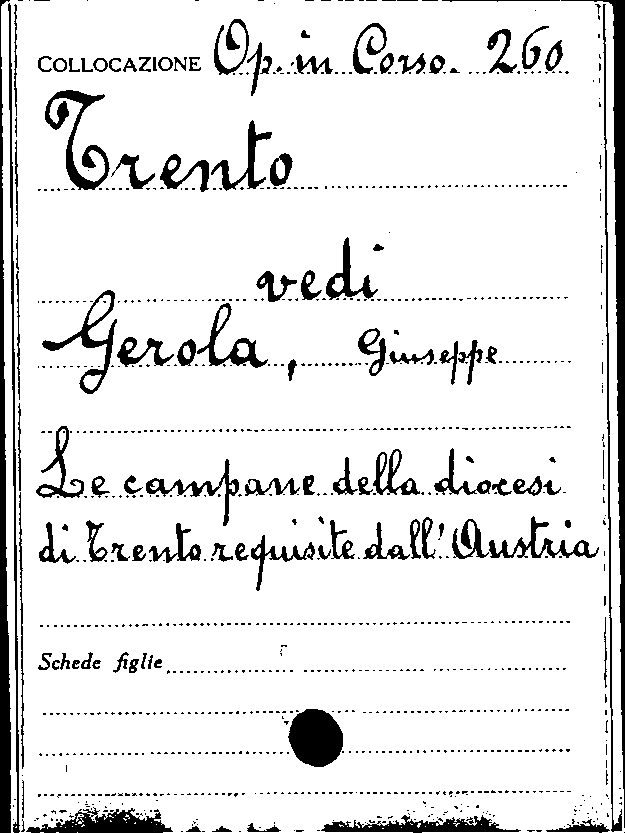 COLLOCAZIONE Op. in Corso. 260
Trento
vedi
Gerola, Giuseppe
Le campane della diocesi
di Trento requisite dall'Austria
Schede figlie